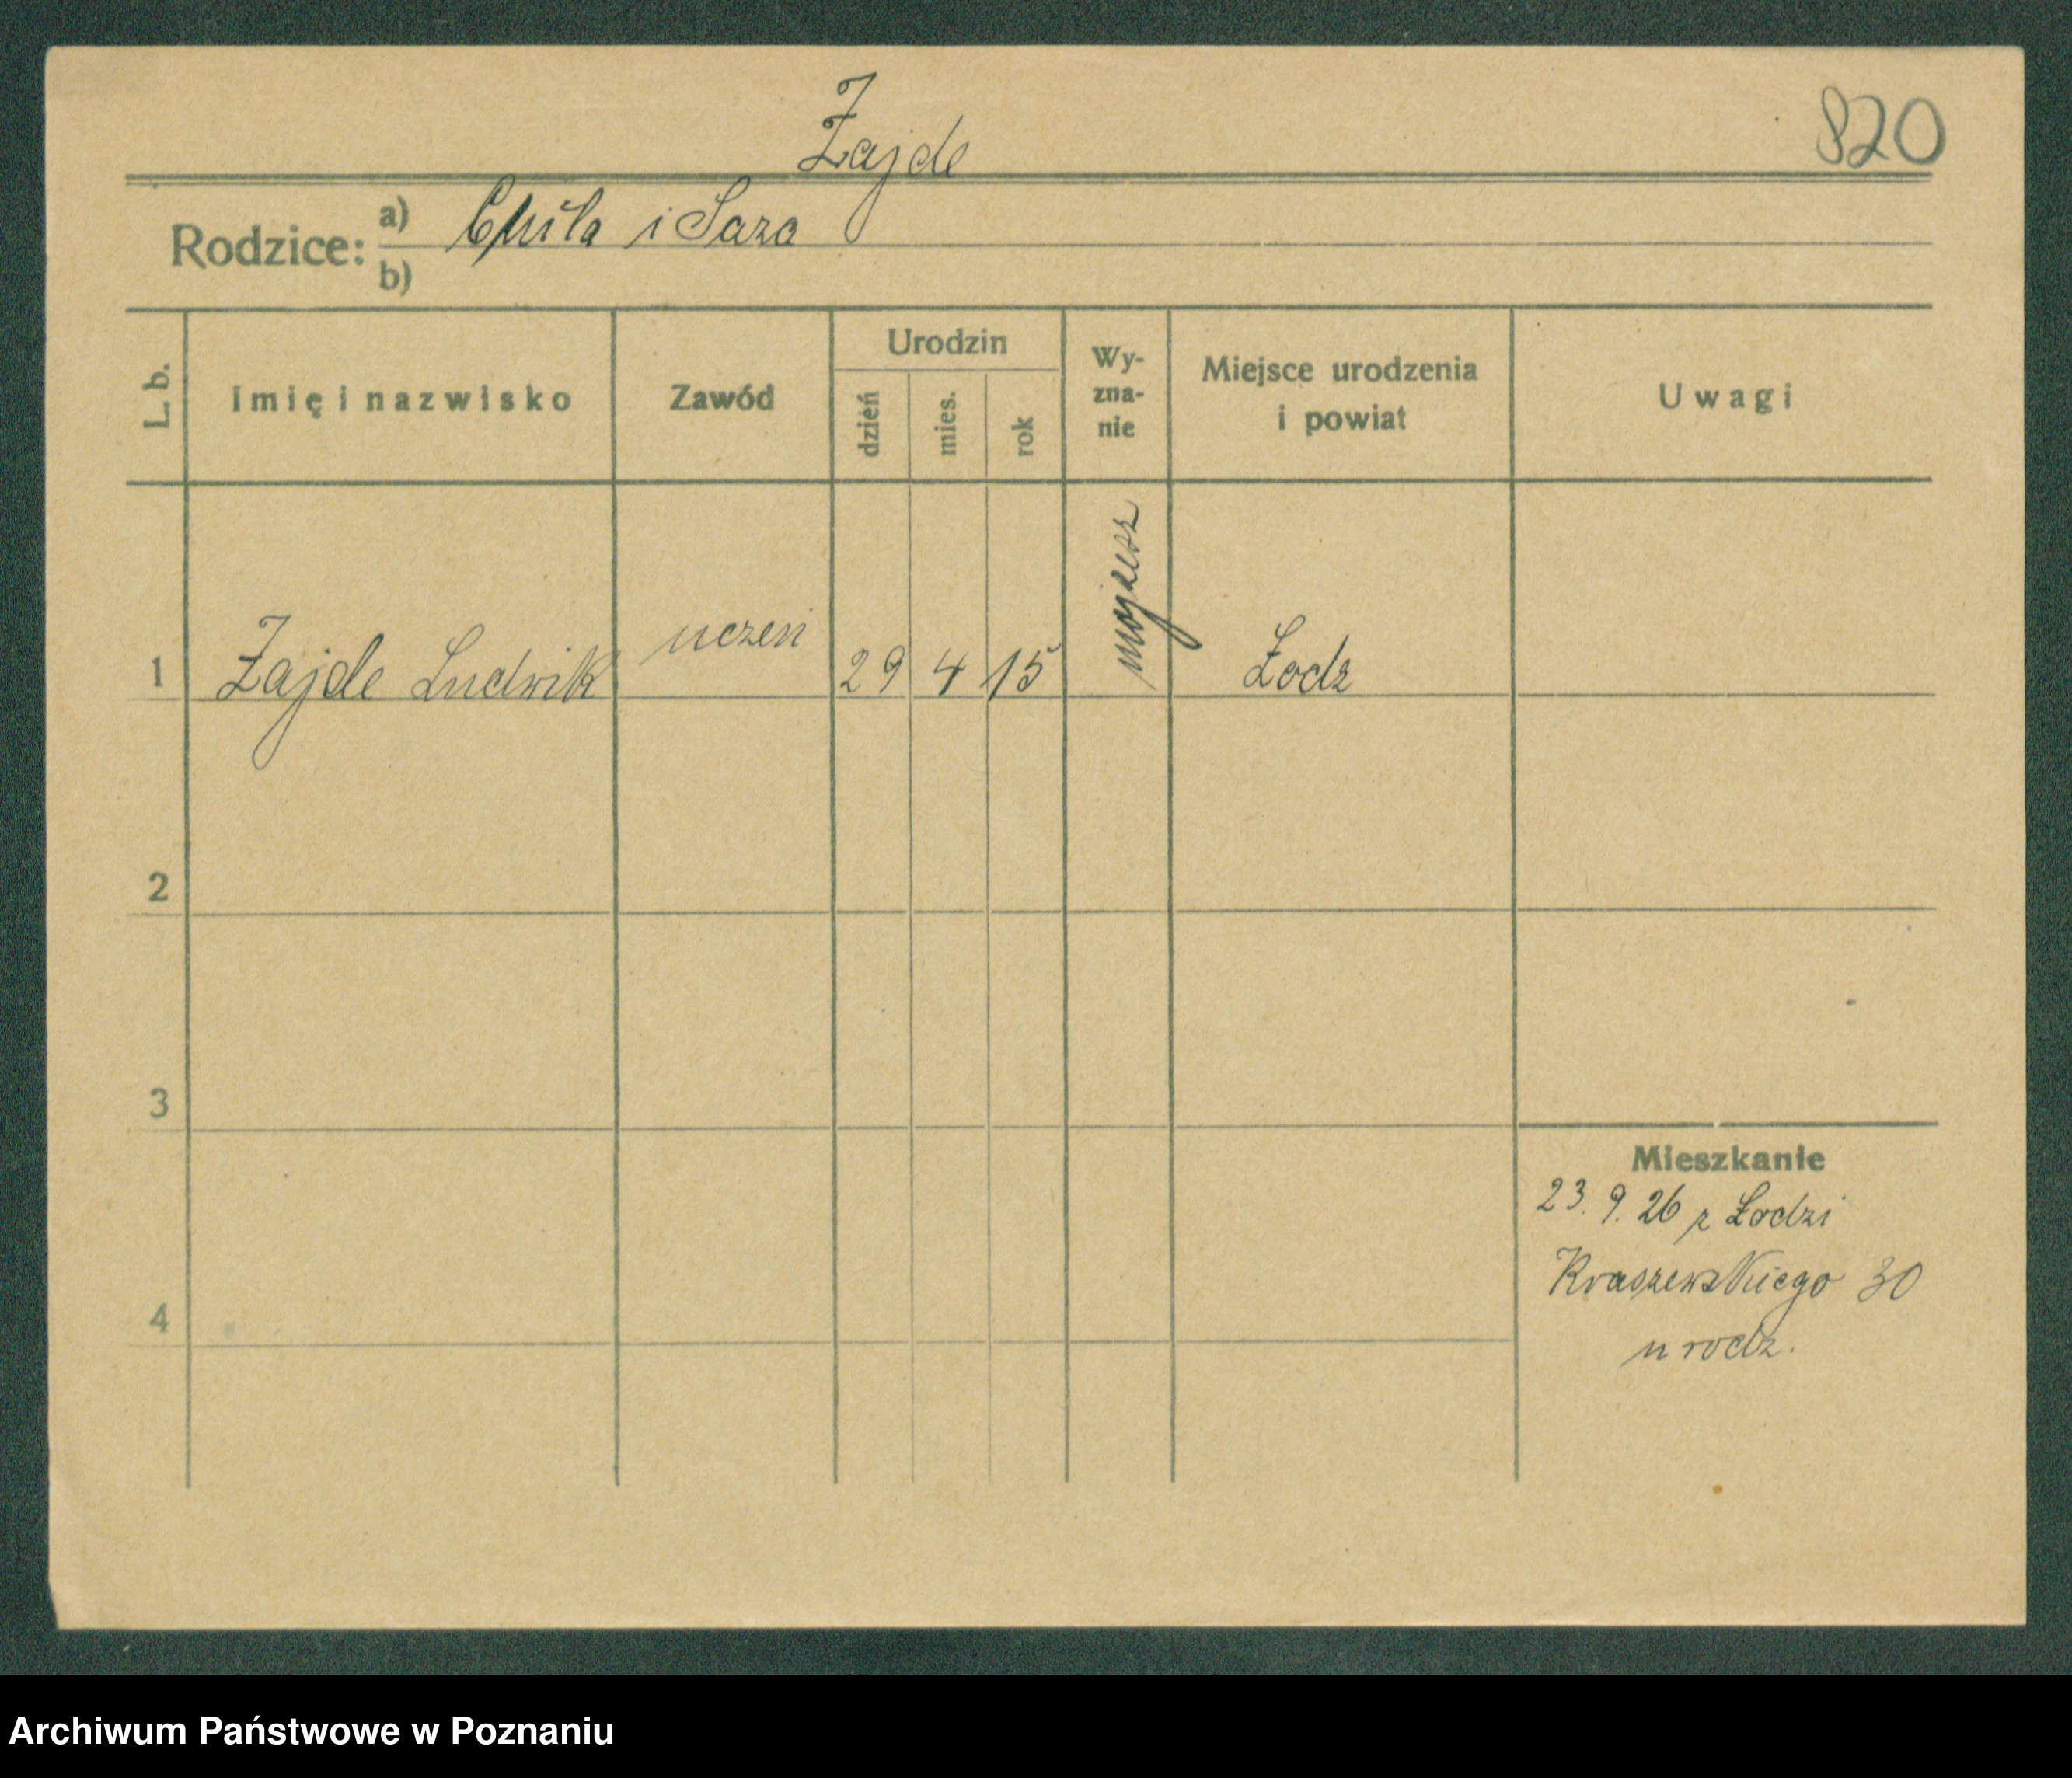 Zajde
820
Rodzice: a) Chila i Sara
b)
L. b. Imię i nazwisko Zawód Urodzin dzień mies. rok Wy-zna-nie Miejsce urodzenia i powiat Uwagi
1 Zajde Ludwik uczeń 29 4 15 mojżesz Łodz
2
3
4
Mieszkanie
23. 9. 26 z Łodzi
Kraszewskiego 30
u rodz.
Archiwum Państwowe w Poznaniu